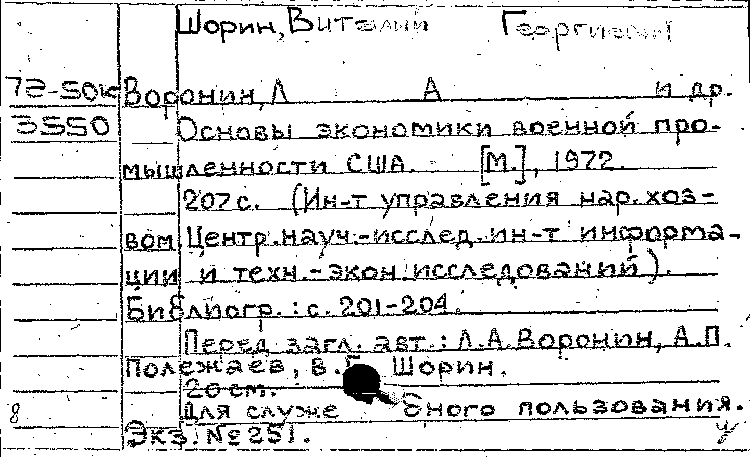 Шорин, Виталий Георгиевич
72-50к Воронин, Л А и др.
3550 Основы экономики военной про-
мышленности США. [М.], 1972.
207 с. (Ин-т управления нар. хоз-
вом, Центр. науч.-исслед. ин-т информа-
ции и техн.-экон. исследований).
Библиогр.: с. 201-204.
Перед загл. авт.: Л.А. Воронин, А.П.
Полежаев, В. Шорин.
20 см.
Для служе бного пользования.
8 Экз. №251.